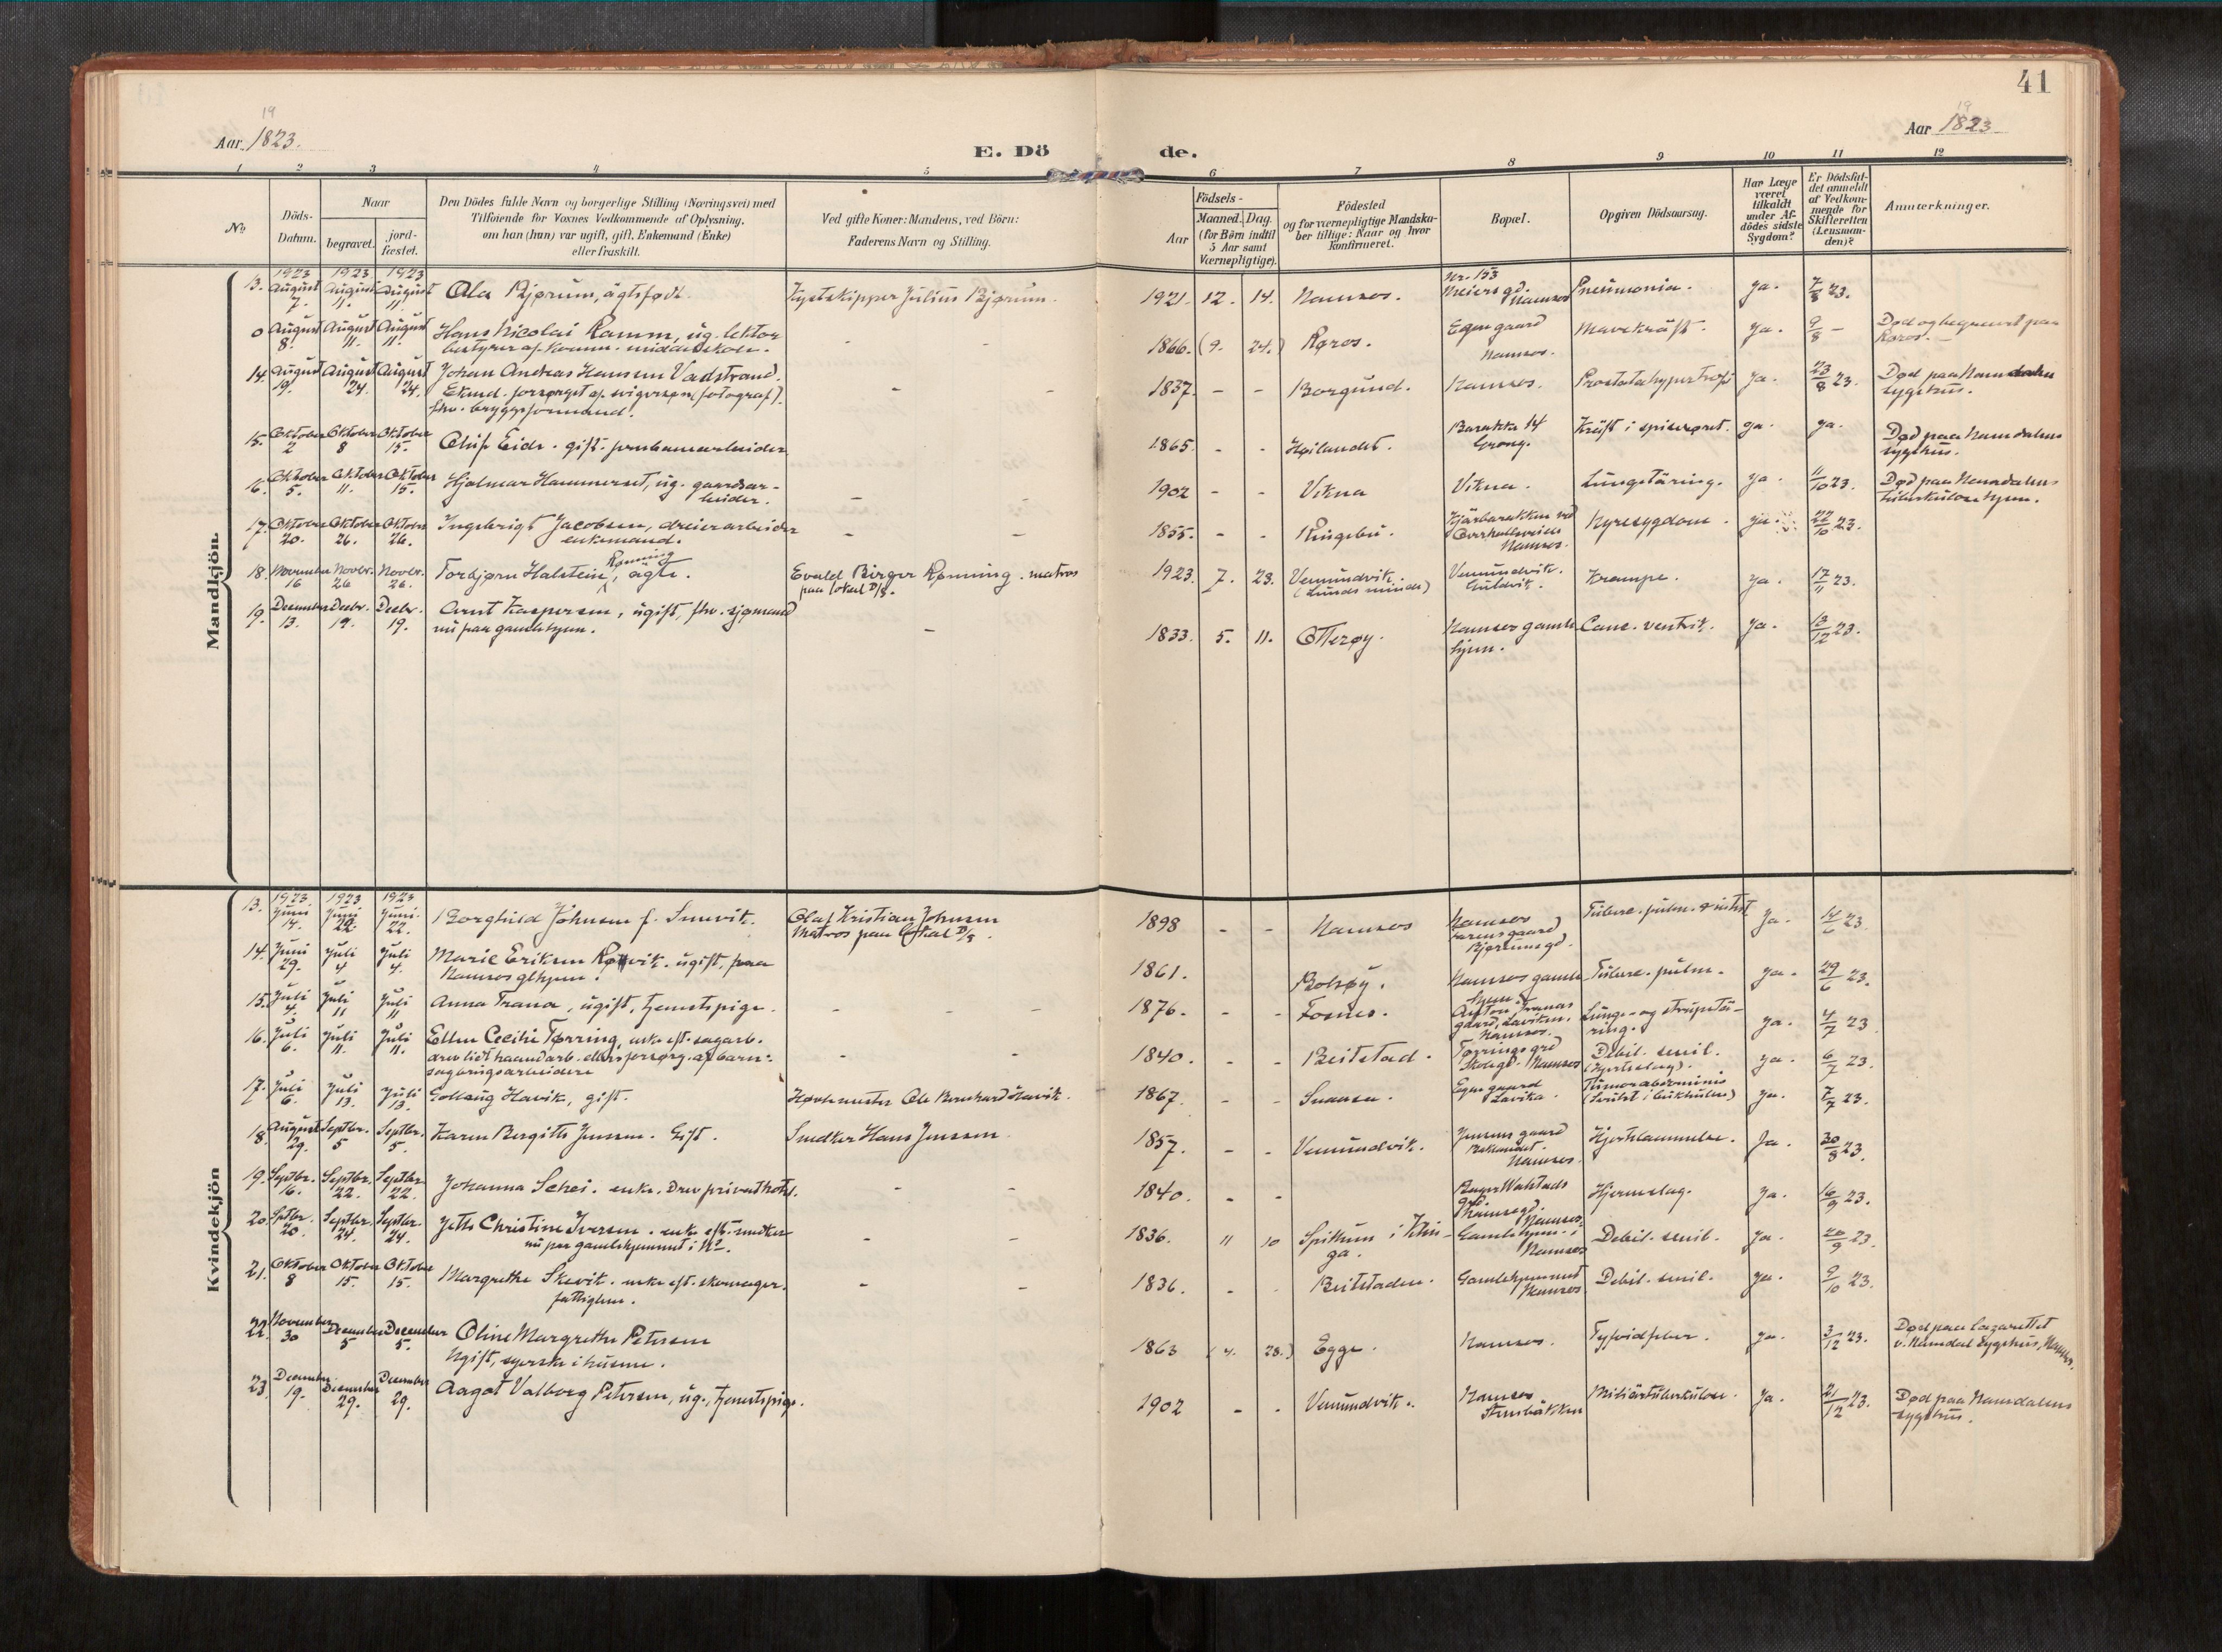 41
19
Aar 1823.
E. Dö
de.
19
Aar 1823
1 2 3 4 5 6 7 8 9 10 11 12
No
Döds-
Datum.
Naar
begravet.
jord-
fæstet.
Den Dödes fulde Navn og borgerlige Stilling (Næringsvei) med
Tilføiende for Voxnes Vedkommende af Oplysning,
om han (hun) var ugift, gift, Enkemand (Enke)
eller fraskilt.
Ved gifte Koner: Mandens, ved Börn:
Faderens Navn og Stilling.
Födsels-
Aar
Maaned.
Dag.
(for Börn indtil
5 Aar samt
Værnepligtige).
Födested
og for værnepligtige Mandska-
ber tillige: Naar og hvor
konfirmeret.
Bopæl.
Opgiven Dödsaarsag.
Har Læge
været
tilkaldt
under Af-
dödes sidste
Sygdom?
Er Dödsfal-
det anmeldt
af Vedkom-
mende for
Skifteretten
(Lensman-
den)?
Anmærkninger.
Mandkjön.
13. 1923 August 7. 1923 August 11. 1923 August 11.
Ola Bjørum, ägtefødt.
Kystskipper Julius Bjørum.
1921. 12. 14. Namsos.
Nr. 153
Meiersgd.
Namsos
Pneumonia. ja. 7/8 23.
0 August 8. August 11. August 11.
Hans Nicolai Ramm, ug. lektor
bestyrer af komm. middelskole.
- -
1866. (9. 24.) Røros.
Egen gaard
Namsos.
Mavekräft. ja. 9/8 -
Død og begravet paa
Røros.
14. August 19. August 24. August 24.
Johan Andreas Hansen Vadstrand.
Ekmd. forsørget af svigersøn (fotograf).
fhv. bryggeformand.
- -
1837. - - Borgund. Namsos. Prostatahypertrofi ja. 23/8 23.
Død paa Namdalens
sygehus.
15. Oktober 2 Oktober 8 Oktober 15.
Oluf Eide. gift. jernbanearbeider
1865. - - Høilandet.
Barakke 14
Grong.
Kräft i spiserøret. ja. ja.
Død paa Namdalens
sygehus.
16. Oktober 5. Oktober 11. Oktober 15.
Hjalmar Hammerset, ug. gaardsar-
beider.
- -
1902 - - Vikna Vikna. Lungetäring. ja. 11/10 23.
Død paa Namdalens
tuberkulosehjem.
17. Oktober 20. Oktober 26. Oktober 26.
Ingebrigt Jacobsen, dreierarbeider
enkemand.
- -
1855. - - Ringebu.
Overhallsveien
Namsos.
Nyresygdom. ja. 22/10 23.
18. November 16 Novbr. 26 Novbr. 26.
Rønning
Torbjørn Halstein, ägte.
Evald Birger Rønning. matros
paa lokal D/S.
1923. 7. 23. Vemundvik.
(Lunds minde)
Vemundvik.
Guldvik.
Krampe. ja. 17/11 23.
19. December 13. Decbr. 19. Decbr. 19.
Arnt Kaspersen, ugift, fhv. sjømand
nu paa gamlehjem.
-
1833. 5. 11. Otterøy.
Namsos gamle
hjem.
Canc. ventrik. ja. 13/12 23.
Kvindekjön
13. 1923 Juni 14. 1923 Juni 22. 1923 Juni 22.
Borghild Johnsen f. Smevik.
Olaf Kristian Johnsen
Matros paa lokal D/S.
1898 - - Namsos
Namsos
Bjørumsgd.
Tuberc. pulm. & intest ja. 14/6 23.
14. Juni 29. Juli 4 Juli 4.
Marie Eriksen Rørvik. ugift, paa
Namsos glhjem.
1861. Bolsøy.
Namsos gamle
hjem.
Tuberc. pulm. ja. 29/6 23.
15. Juli 4. Juli 11 Juli 11
Anna Trana, ugift, tjenestepige.
- - -
1876. - - Fosnes.
Anton Tranas
gaard, Laviken,
Namsos.
Lunge- og strupetä-
ring. ja. 4/7 23.
16. Juli 6. Juli 11. Juli 11.
Ellen Cecilie Tørring, enke eft. sagarb.
drev lidt haandarb. ellers forsørg. af barn:
sagbrugsarbeidere
- -
1840. - - Beitstad.
Tørrings grd
Skolegd. Namsos
Debil. senil.
(Hjerteslag). ja. 6/7 23.
17. Juli 6. Juli 13. Juli 13.
Solaug Havik, gift.
Havnemester Ole Bernhard Havik.
1867. - - Snaasa.
Egen gaard
Lavika.
Tumor abdominis
(Svulst i bukhulen) ja. 7/7 23.
18. August 29. Septbr. 5 Septbr. 5.
Karen Birgitte Jenssen. Gift.
Smeden Hans Jenssen
1857. - - Vemundvik.
Jensens gaard
Bakkandet.
Namsos.
Hjertelammelse. Ja. 30/8 23.
19. Septbr. 16. Septbr. 22. Septbr. 22.
Johanna Schei. enke. Drev privathotel.
- -
1840. - -
Birger Wahlstads
grd.
Namsos.
Hjerneslag. ja. 16/9 23.
20. Septbr. 20. Septbr. 24. Septbr. 24.
Jette Christine Iversen. enke eft. smeden
nu paa gamlehjemmet i Ns.
- -
1836. 11 10 Spikum i Klin-
ga.
Gamlehjem. i
Namsos
Debil. senil. ja. 20/9 23.
21. Oktober 8 Oktober 15. Oktober 15.
Margrethe Skevik. enke eft. skomager.
fattiglem.
- -
1836. - - Beitstaden.
Gamlehjemmet
Namsos
Debil. senil. ja. 9/10 23.
22. November 30 December 5 December 5.
Oline Margrethe Petersen
Ugift, syerske i husene.
1863 (4. 28.) Egge. Namsos. Tyfoidfeber. ja. 3/12 23.
Død paa lazarettet
v. Namdal Sygehus, Namsos.
23. December 19. December 29. December 29.
Aagot Valborg Petersen, ug., tjenestepige.
1902 - - Vemundvik.
Namsos
Miliärtuberkulose. Ja. 21/12 23.
Død paa Namdalens
sygehus.